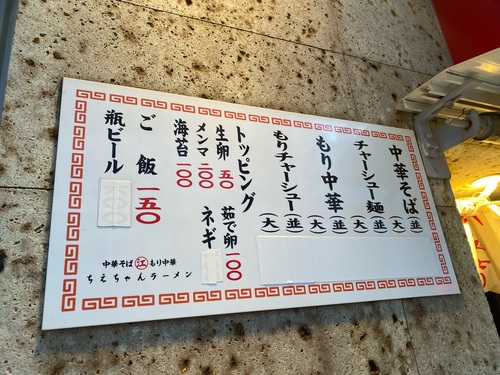 中華そば(並)(大)
チャーシュー麺(並)(大)
もり中華(並)(大)
もりチャーシュー(並)(大)
トッピング
生卵 五〇
茹で卵 一〇〇
メンマ 一〇〇
ネギ
海苔 一〇〇
ご飯 一五〇
瓶ビール
中華そば 江 もり中華
ちえちゃんラーメン